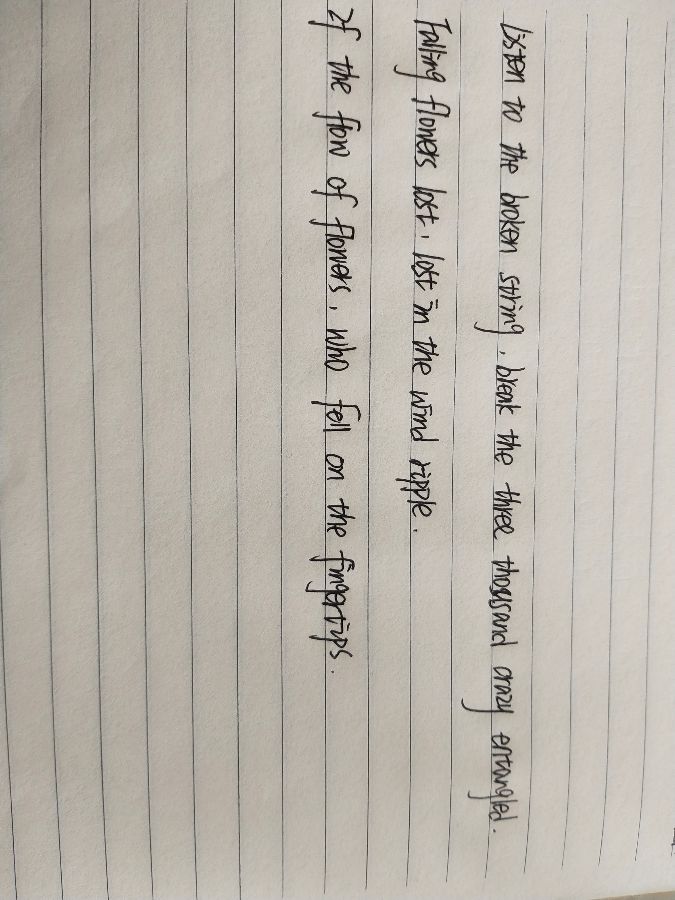 Listen to the broken string, break the three thousand crazy entangled.
Falling flowers lost, lost in the wind ripple.
If the flow of flowers, who fell on the fingertips.